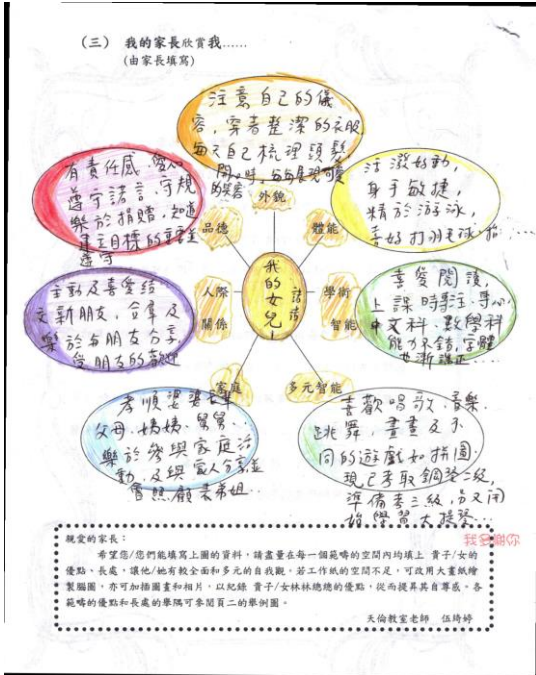 (三) 我的家長欣賞我......
(由家長填寫)
注意自己的儀
容，穿著整潔的衣服
每天自己梳理頭髮
的笑容
外貌
有責任感，愛心
遵守諾言，守規
樂於捐贈，知道
建立目標的重要並
遵守
品德
活潑好動，
身手敏捷，
精於游泳，
喜好打羽毛球，抬....
體能
我的女兒
詩情
主動及喜愛結
交新朋友，合群及
樂於與朋友分享，
受朋友的歡迎
人際
關係
喜愛閱讀，
上課時專注、專心，
中文科、數學科
能力不錯，字體
也漸端正....
學術
智能
孝順婆婆長輩
父母、姨姨、舅舅..
樂於參與家庭活
動，及與家人分享，並
會照顧表弟姐..
家庭
喜歡唱歌、音樂、
跳舞，畫畫及不
同的遊戲如拼圖
現已考取鋼琴二級，
準備考三級，另又開
始學習大提琴...
多元智能
我多謝你
親愛的家長：
希望您/您們能填寫上圖的資料，請盡量在每一個範疇的空間內均填上 貴子/女的
優點、長處，讓他/她有較全面和多元的自我觀。若工作紙的空間不足，可改用大畫紙繪
製腦圖，亦可加插圖畫和相片，以紀錄 貴子/女林林總總的優點，從而提昇其自尊感。各
範疇的優點和長處的舉隅可參閱頁二的舉例圖。
天倫教室老師 伍綺婷